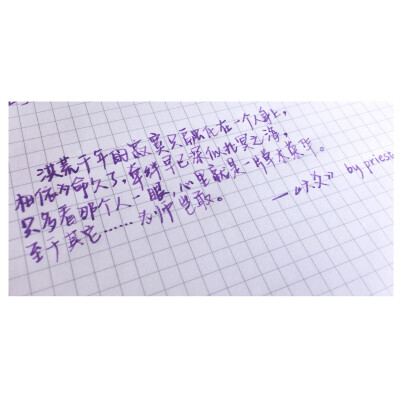 洪荒千年的寂寞只融化在一个人身上，
相依为命久了，牵绊早已深似北冥之海，
只多看那个人一眼，心里就是一片草木荣华。
至于其它……为师岂敢。
——《六爻》 by priest